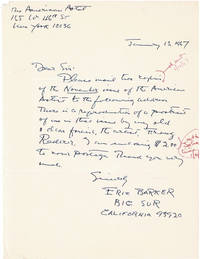 The American Artist
165 W 46th St
New York 10036
January 13, 1967
Dear Sir:
Please mail two copies
of the November issue of the American
Artist to the following address.
There is a reproduction of a portrait
of me in that issue by my old
& dear friend, the artist,
I am enclosing $2.00
to cover postage. Thank you very
much.
Sincerely
ERIC BARKER
BIG SUR
CALIFORNIA 93920